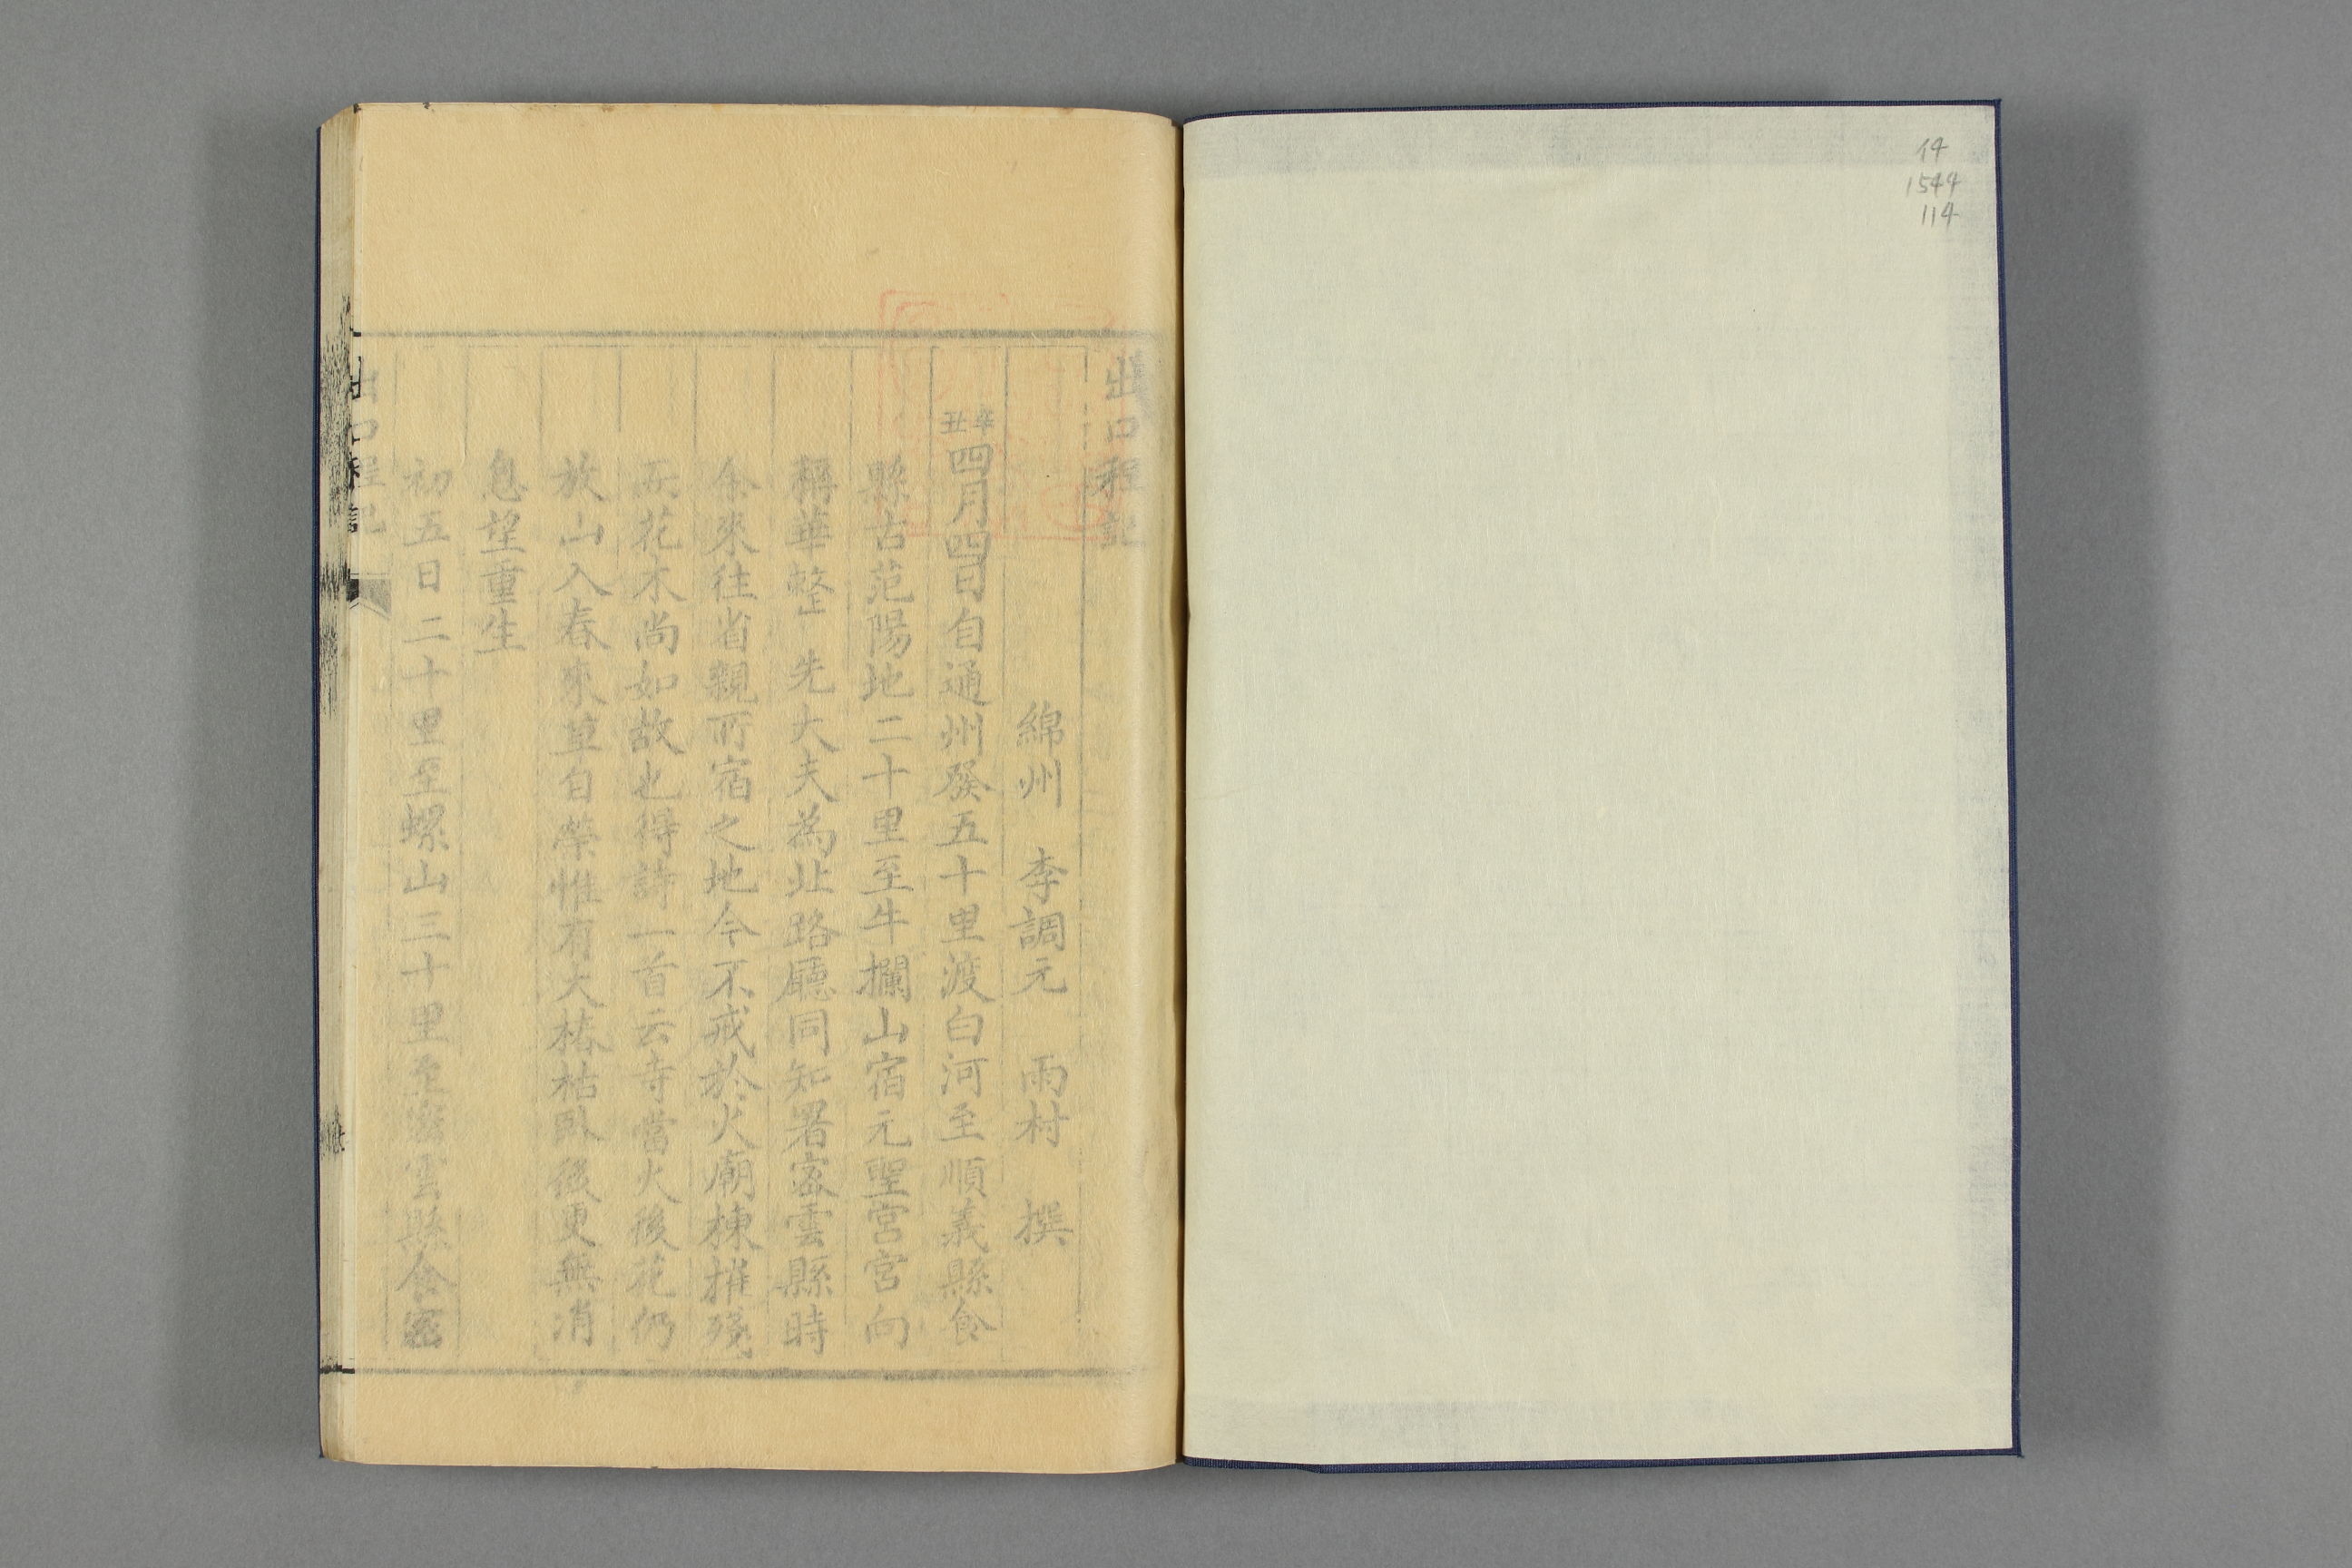 14
1544
114
出口程記
綿州 李調元 雨村 撰
辛丑四月四日自通州發五十里渡白河至順義縣食
縣古范陽地二十里至牛攔山宿元聖宮宮向
稱華整 先大夫為北路廳同知署密雲縣時
余來往省親所宿之地今不戒於火廟棟摧殘
而花木尚如故也得詩一首云寺當火後花仍
放山入春來草自榮惟有大椿枯臥後更無消
息望重生
初五日二十里至螺山三十里至密雲縣食密
出口程記